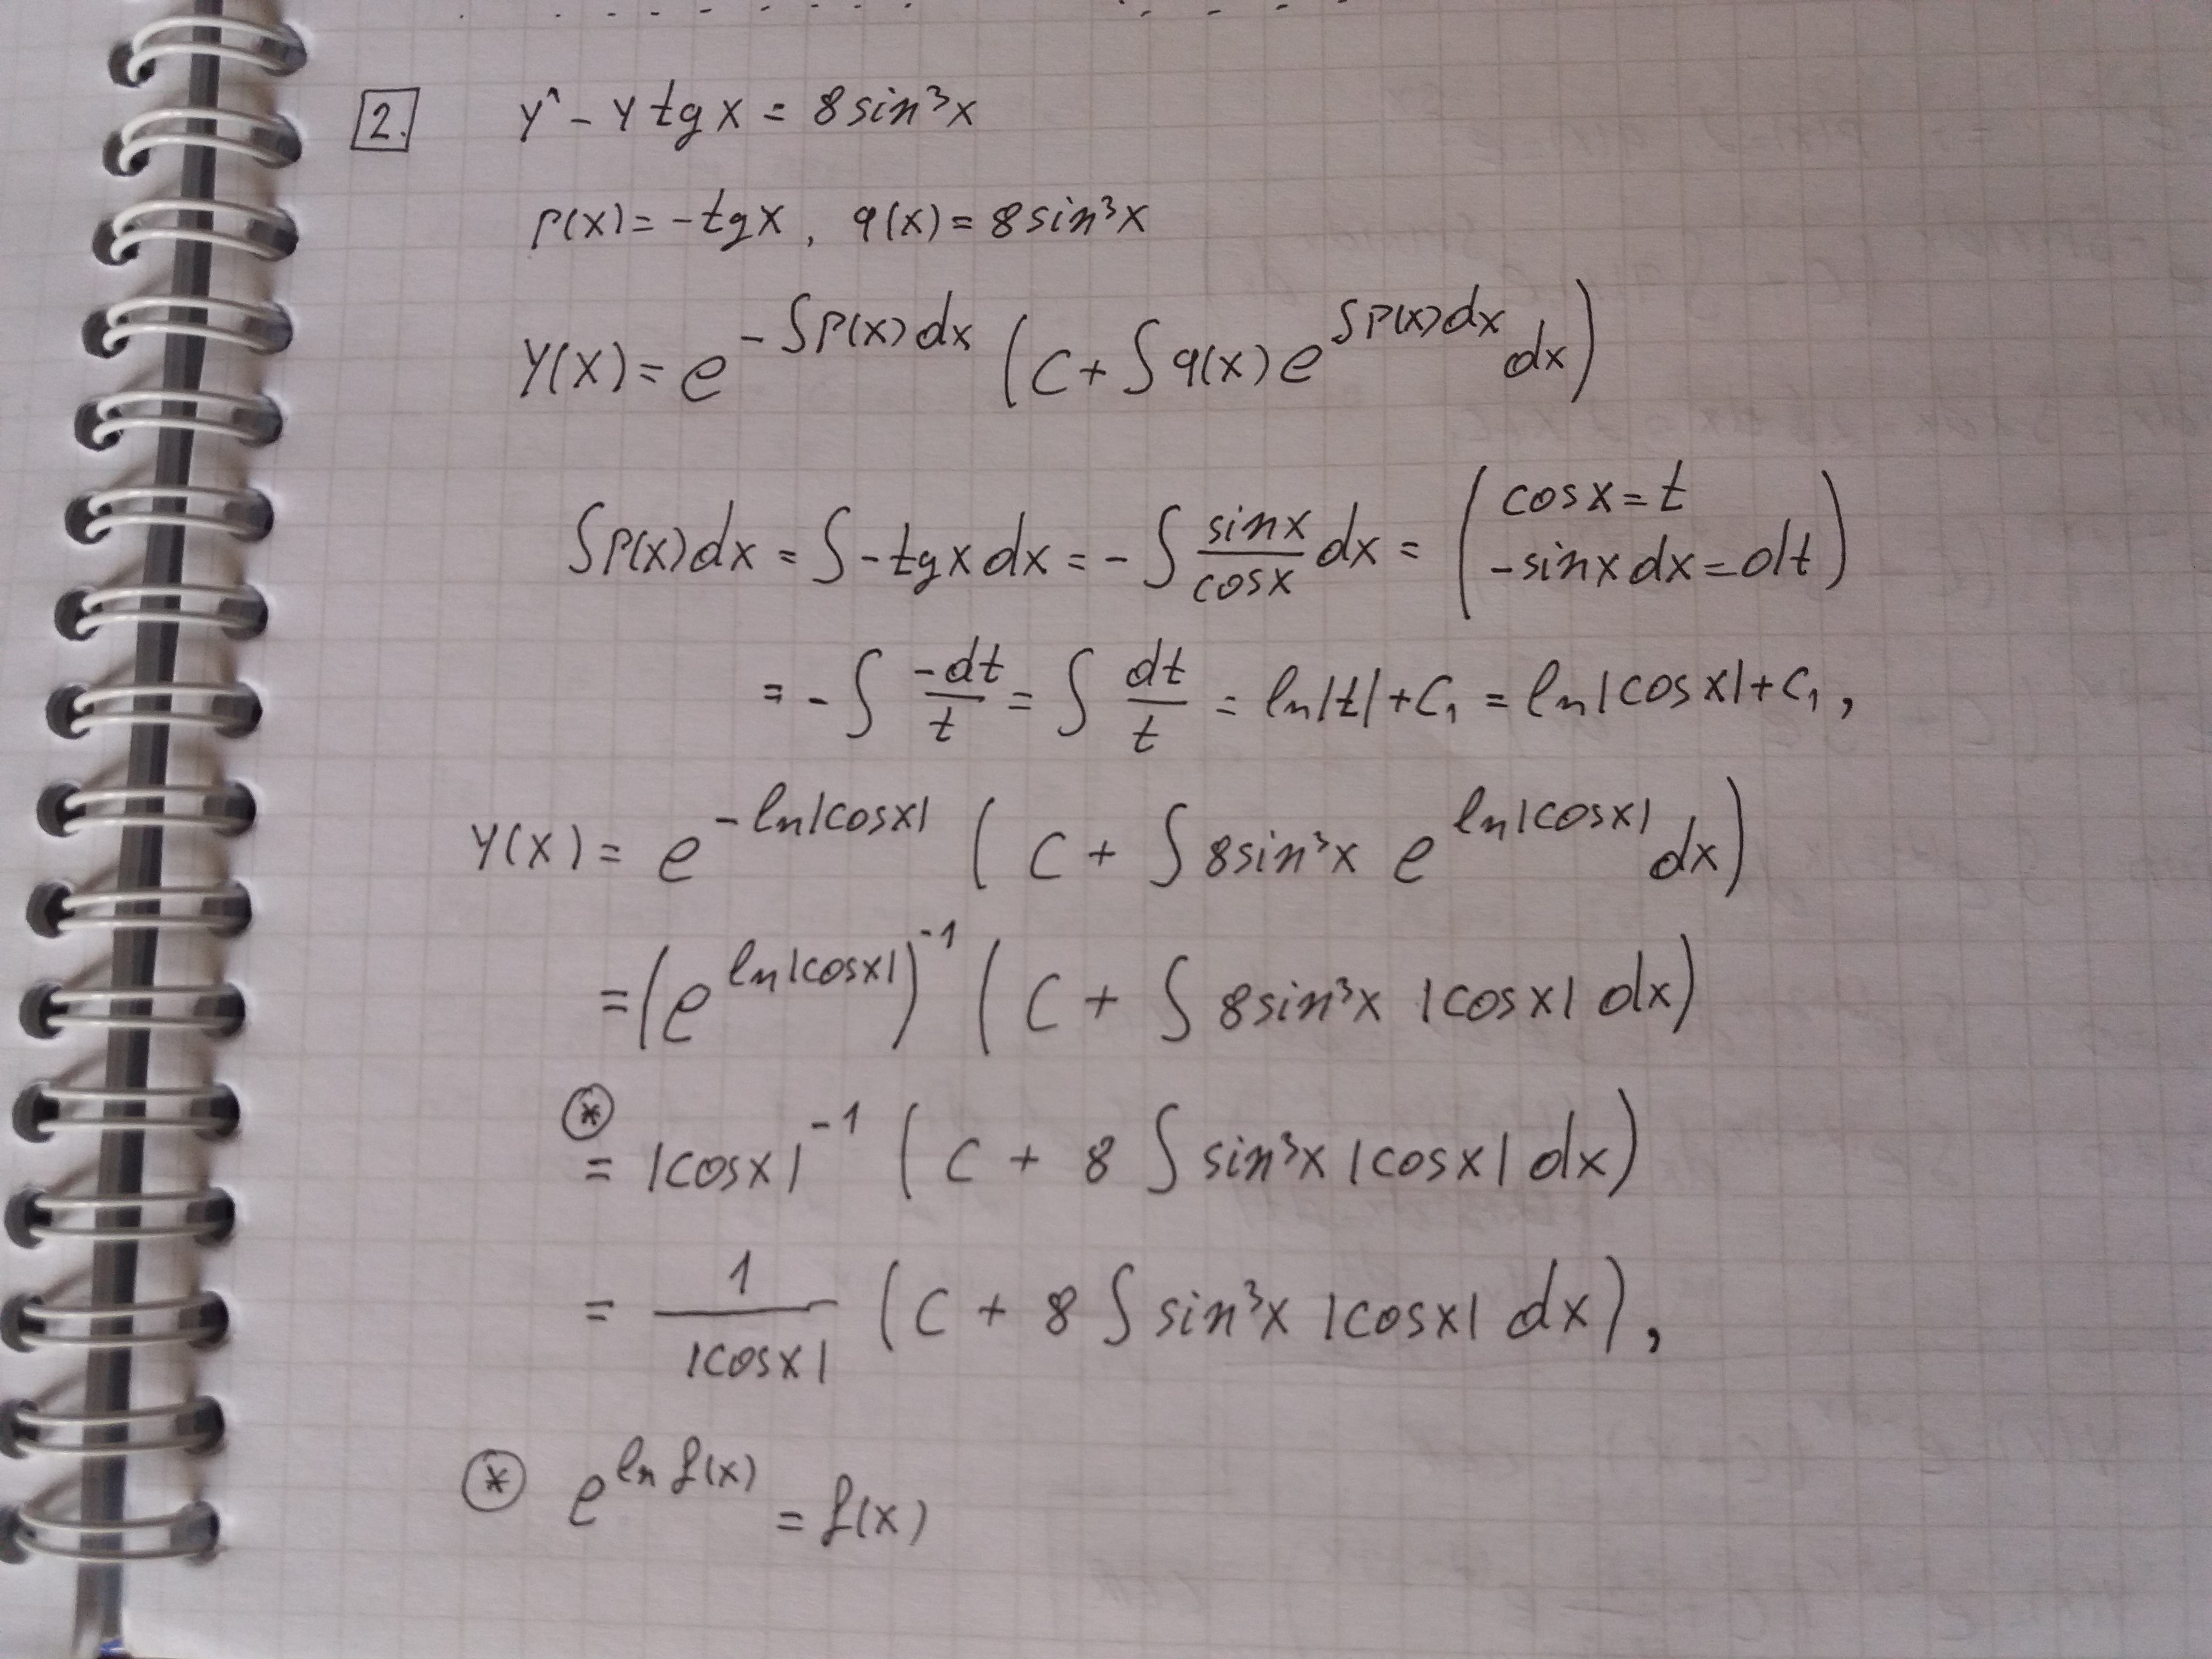 2. y' - y tg x = 8 sin³x
p(x) = -tg x, q(x) = 8 sin³x
y(x) = e^{-∫p(x)dx} (C + ∫q(x) e^{∫p(x)dx} dx)
∫p(x)dx = ∫-tg x dx = -∫ \frac{sin x}{cos x} dx = (cos x = t
-sin x dx = dt)
= -∫ \frac{-dt}{t} = ∫ \frac{dt}{t} = ln|t| + C₁ = ln|cos x| + C₁,
y(x) = e^{-ln|cos x|} (C + ∫ 8 sin³x e^{ln|cos x|} dx)
= (e^{ln|cos x|})^{-1} (C + ∫ 8 sin³x |cos x| dx)
⊛= |cos x|^{-1} (C + 8 ∫ sin³x |cos x| dx)
= \frac{1}{|cos x|} (C + 8 ∫ sin³x |cos x| dx),
⊛ e^{ln f(x)} = f(x)